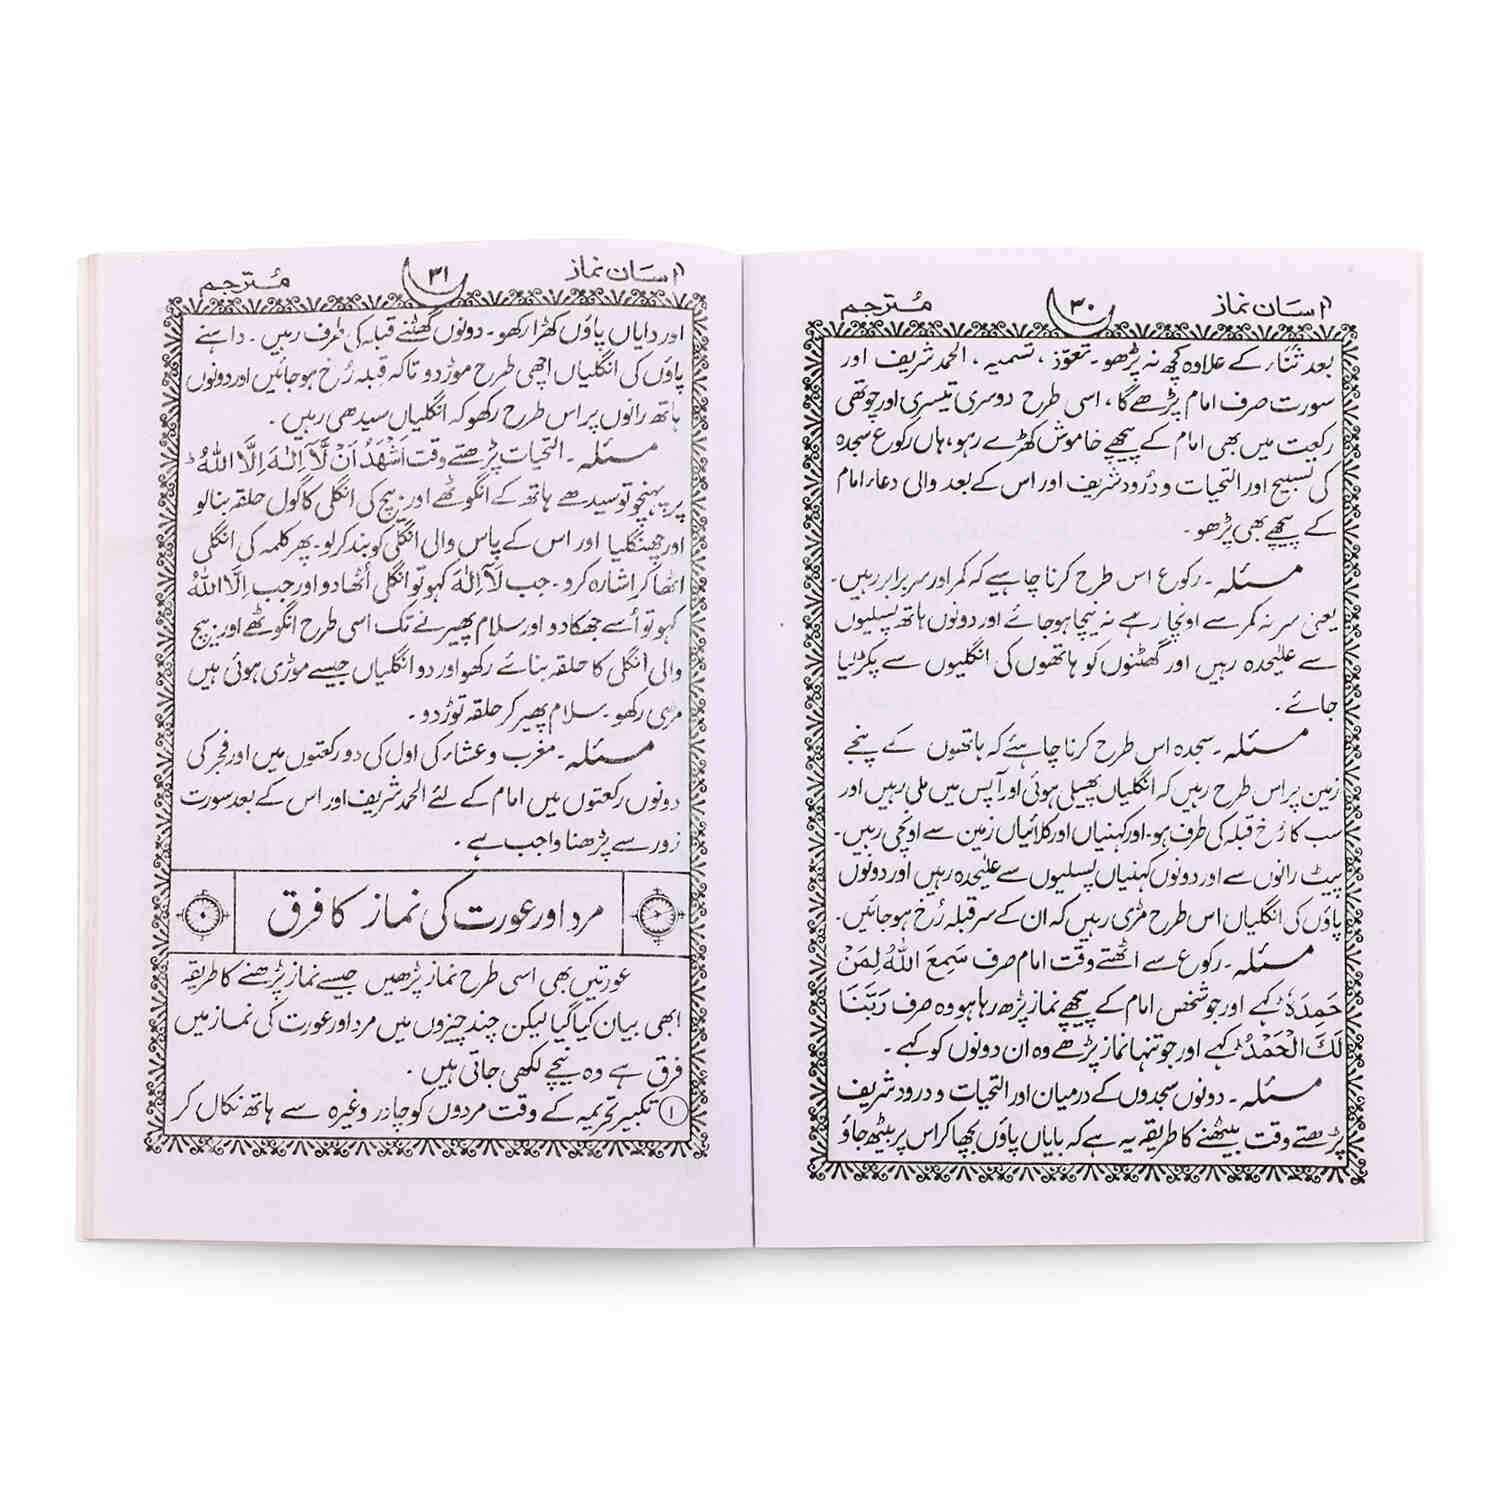 آسان نماز
۳۰
مُترجم
بعد ثَنَاء کے علاوہ کچھ نہ پڑھو۔ تعوّذ، تسمیہ، الحمد شریف اور
سورت صرف امام پڑھے گا، اسی طرح دوسری تیسری اور چوتھی
رکعت میں بھی امام کے پیچھے خاموش کھڑے رہو، ہاں رکوع سجدہ
کی تسبیح اور التحیات و دُرود شریف اور اس کے بعد والی دعاء امام
کے پیچھے بھی پڑھو۔
مسئلہ۔ رکوع اس طرح کرنا چاہیے کہ کمر اور سر برابر رہیں۔
یعنی سر نہ کمر سے اونچا رہے نہ نیچا ہو جائے اور دونوں ہاتھ پسلیوں
سے علیٰحدہ رہیں اور گھٹنوں کو ہاتھوں کی انگلیوں سے پکڑ لیا
جائے۔
مسئلہ۔ سجدہ اس طرح کرنا چاہئے کہ ہاتھوں کے پنجے
زمین پر اس طرح رہیں کہ انگلیاں پھیلی ہوئی اور آپس میں ملی رہیں اور
سب کا رُخ قبلہ کی طرف ہو۔ اور کہنیاں اور کلائیاں زمین سے اونچی رہیں۔
پیٹ رانوں سے اور دونوں کہنیاں پسلیوں سے علیٰحدہ رہیں اور دونوں
پاؤں کی انگلیاں اس طرح مڑی رہیں کہ ان کے سر قبلہ رُخ ہو جائیں۔
مسئلہ۔ رکوع سے اٹھتے وقت امام صرف سَمِعَ اللّٰہُ لِمَنْ
حَمِدَہٗ کہے اور جو شخص امام کے پیچھے نماز پڑھ رہا ہو وہ صرف رَبَّنَا
لَکَ الْحَمْدُ کہے اور جو تنہا نماز پڑھے وہ ان دونوں کو کہے۔
مسئلہ۔ دونوں سجدوں کے درمیان اور التحیات و درود شریف
پڑھتے وقت بیٹھنے کا طریقہ یہ ہے کہ بایاں پاؤں بچھا کر اس پر بیٹھ جاؤ
آسان نماز
۳۱
مُترجم
اور دایاں پاؤں کھڑا رکھو۔ دونوں گھٹنے قبلہ کی طرف رہیں۔ داہنے
پاؤں کی انگلیاں اچھی طرح موڑ دو تاکہ قبلہ رُخ ہو جائیں اور دونوں
ہاتھ رانوں پر اس طرح رکھو کہ انگلیاں سیدھی رہیں۔
مسئلہ۔ التحیات پڑھتے وقت اَشْھَدُ اَنْ لَّآ اِلٰہَ اِلَّا اللّٰہُ
پر پہنچو تو سیدھے ہاتھ کے انگوٹھے اور بیچ کی انگلی کا گول حلقہ بنا لو
اور چھنگلیا اور اس کے پاس والی انگلی کو بند کر لو۔ پھر کلمہ کی انگلی
اٹھا کر اشارہ کرو۔ جب لَآ اِلٰہَ کہو تو انگلی اُٹھا دو اور جب اِلَّا اللّٰہُ
کہو تو اُسے جھکا دو اور سلام پھیرنے تک اسی طرح انگوٹھے اور بیچ
والی انگلی کا حلقہ بنائے رکھو اور دو انگلیاں جیسے موڑی ہوئی ہیں
مڑی رکھو۔ سلام پھیر کر حلقہ توڑ دو۔
مسئلہ۔ مغرب و عشاء کی اول کی دو رکعتوں میں اور فجر کی
دونوں رکعتوں میں امام کے لئے الحمد شریف اور اس کے بعد سورت
زور سے پڑھنا واجب ہے۔
مرد اور عورت کی نماز کا فرق
عورتیں بھی اسی طرح نماز پڑھیں جیسے نماز پڑھنے کا طریقہ
ابھی بیان کیا گیا لیکن چند چیزوں میں مرد اور عورت کی نماز میں
فرق ہے وہ نیچے لکھی جاتی ہیں۔
۱ تکبیر تحریمہ کے وقت مردوں کو چادر وغیرہ سے ہاتھ نکال کر